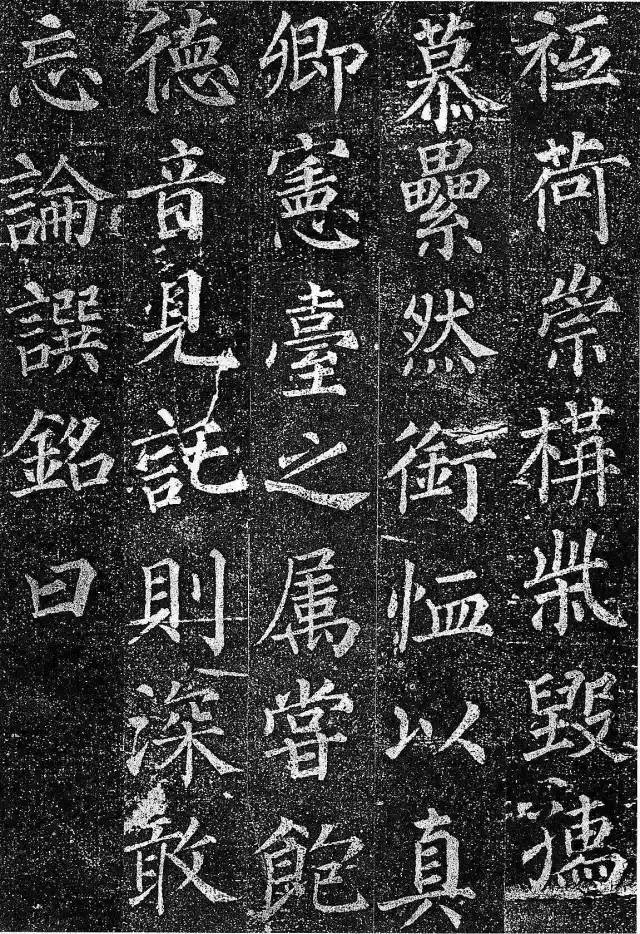 祗荷崇構柴毀孺
慕纍然銜恤以真
卿憲臺之属嘗飽
德音見託則深敢
忘論譔銘曰